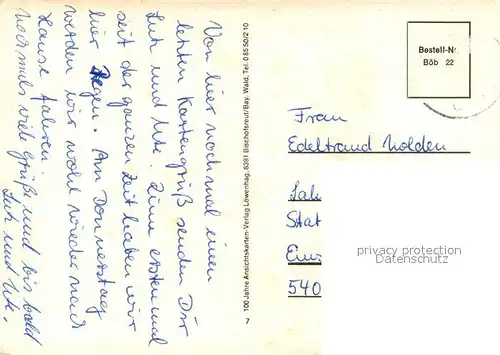 Von hier nochmal einen
letzten Kartengruß senden Dir
Lutz und Ute. Zum erstenmal
seit der ganzen Zeit haben wir
hier Regen. Am Donnerstag
werden wir wohl wieder nach
Hause fahren.
Nochmals viele Grüße und bis bald
Lutz und Ute.
100 Jahre Ansichtskarten-Verlag Löwenhag, 8391 Bischofsreut/Bay. Wald, Tel. 0 85 50/2 10
7
Bestell-Nr.
Böb 22
Frau
Edeltraud Nolden
Stat
540
privacy protection
Datenschutz